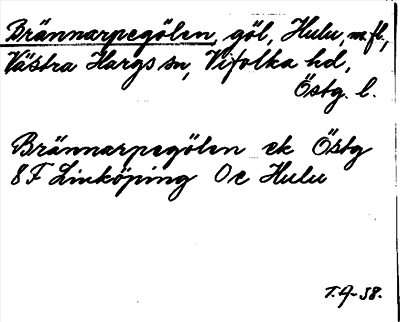 Brännarpegölen, göl, Hulu, m.fl.,
Västra Hargs sn, Vifolka hd,
Östg. l.
Brännarpegölen ek Östg
8F Linköping 0c Hulu
T.A-38.